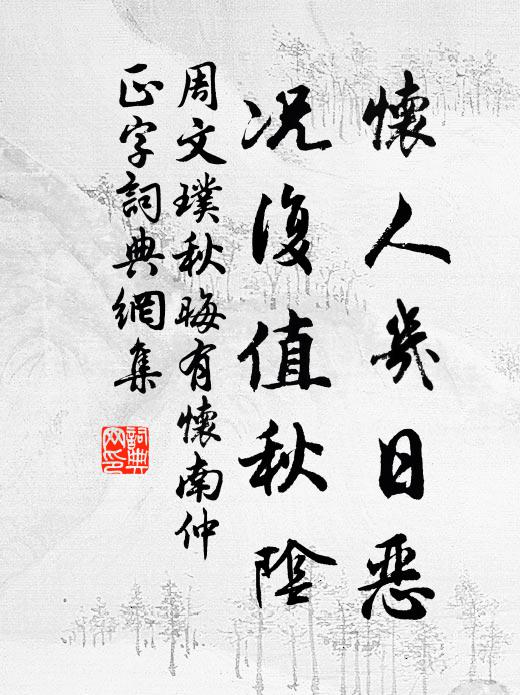 懷人幾日惡
況復值秋陰
周文璞秋晦有懷南仲
正字詞典網集
詞典
网印